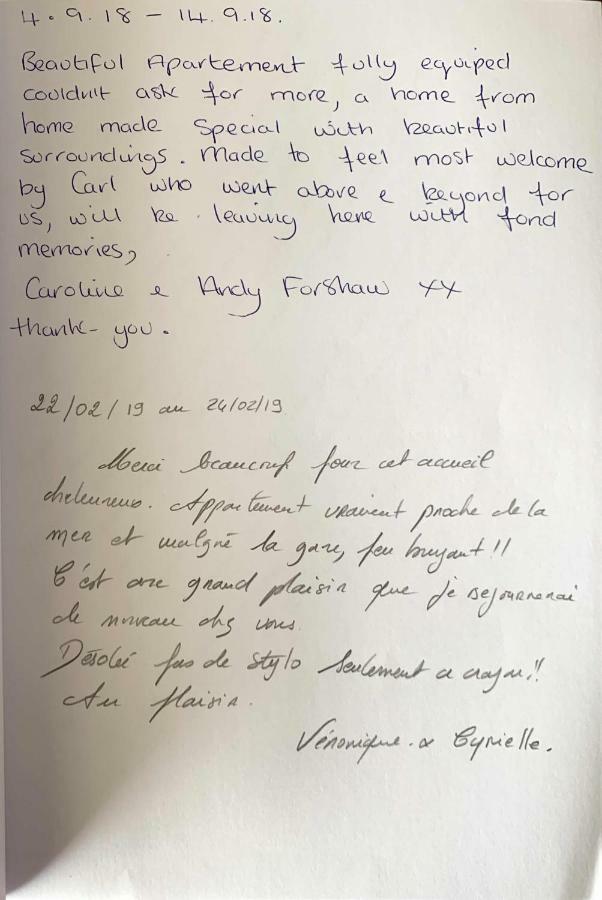 4.9.18 - 14.9.18.
Beautiful Apartement fully equiped
couldnt ask for more, a home from
home made Special with beautiful
Surroundings. Made to feel most welcome
by Carl who went above & beyond for
us, will be leaving here with fond
memories,
Caroline & Andy Forshaw xx
thank-you.
22/02/19 au 24/02/19
Merci beaucoup pour cet accueil
cheleureux. Appartement vraiment proche de la
mer et malgré la gare, peu bruyant!!
C'est avec grand plaisir que je sejournerai
de nouveau chez vous.
Désolée pas de stylo seulement ce crayon!!
Au plaisir.
Véronique & Cyrielle.